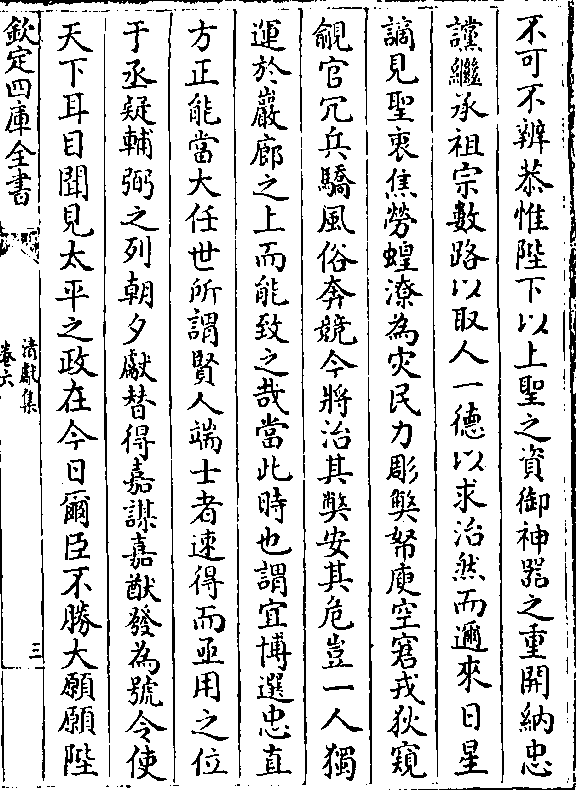 不可不辨恭惟陛下以上聖之資御神器之重開納忠
讜繼承祖宗數路以取人一德以求治然而邇來日星
謫見聖衷焦勞蝗潦為灾民力彫弊帑庾空窘戎狄窺
覦官冗兵驕風俗奔競今將治其弊安其危豈一人獨
運於巖廊之上而能致之哉當此時也謂宜博選忠直
方正能當大任世所謂賢人端士者速得而亟用之位
于丞疑輔弼之列朝夕獻替得嘉謀嘉猷發為號令使
天下耳目聞見太平之政在今日爾臣不勝大願願陛
欽定四庫全書
清獻集
卷六
三